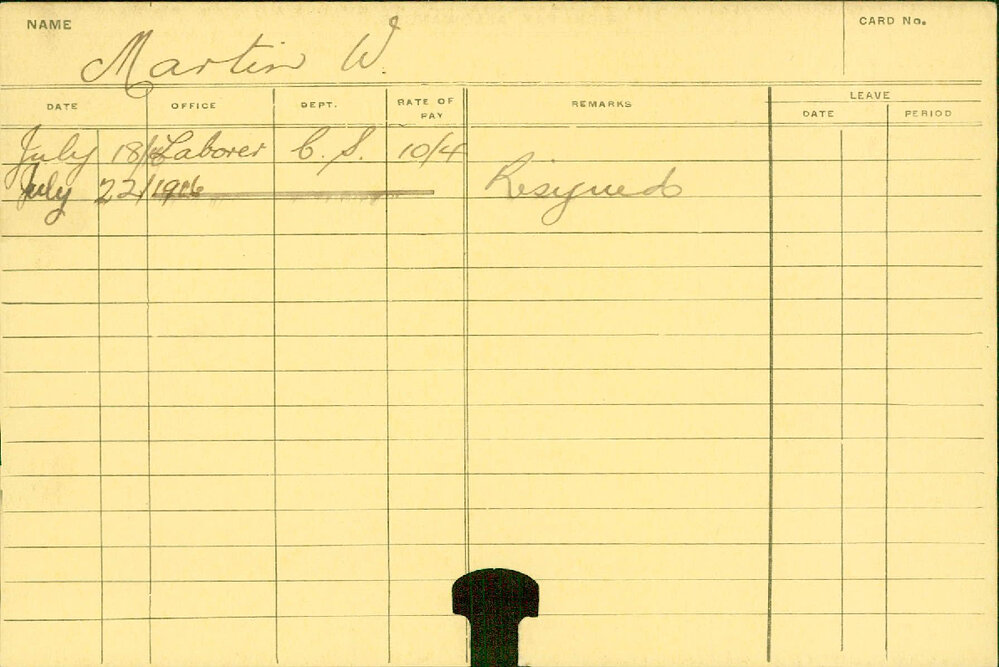 NAME
CARD No.
Martin W.
DATE OFFICE DEPT. RATE OF PAY REMARKS LEAVE
DATE PERIOD
July 18/16 Laborer C. S. 10/4
July 22/1916 Resigned